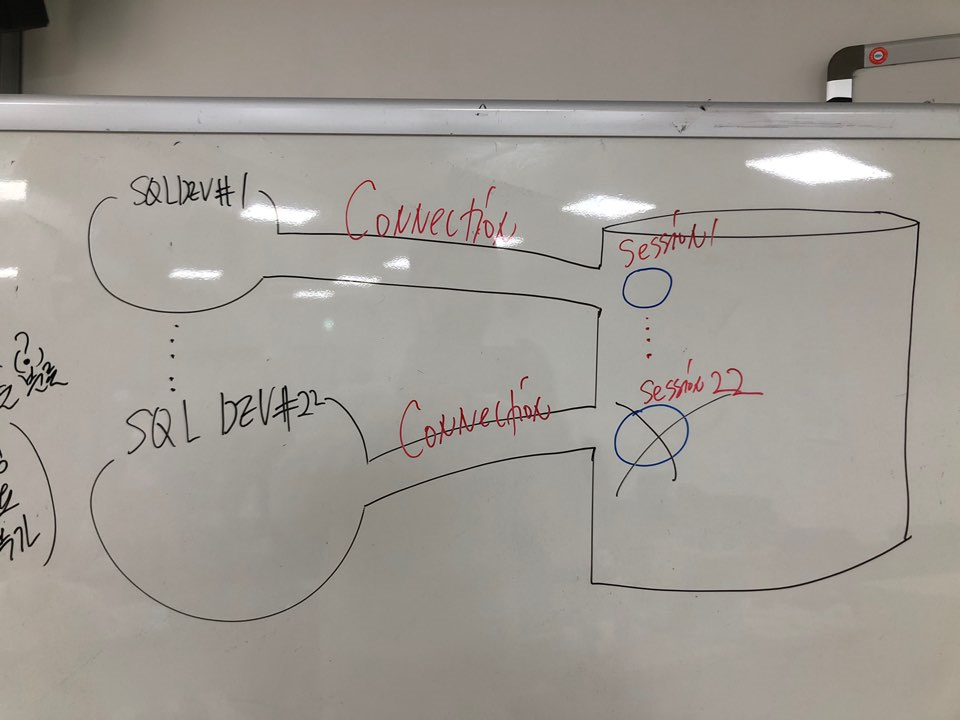 SQLDEV#1
Connection
Session1
SQL DEV#22
Connection
Session 22
?